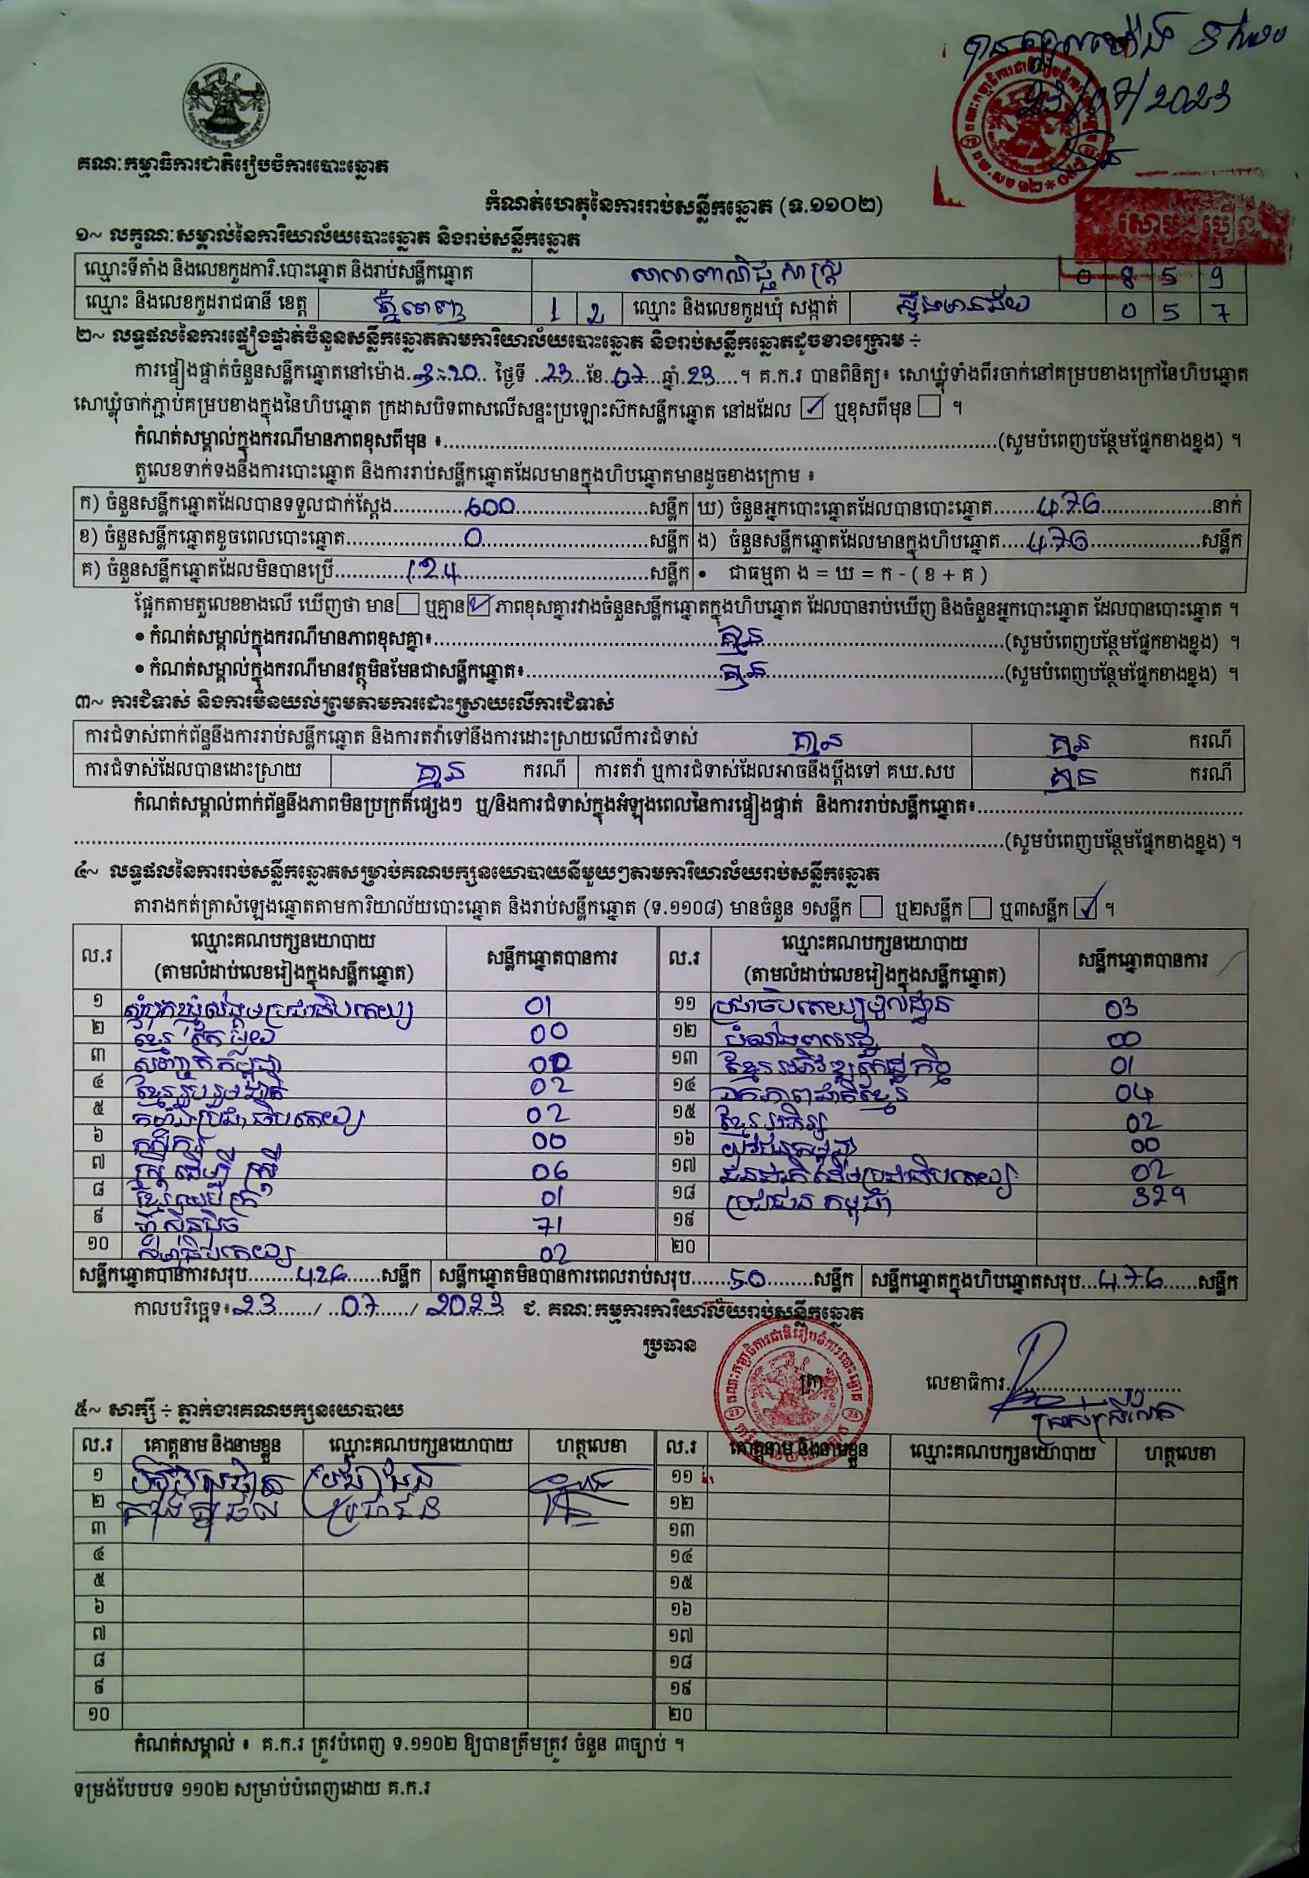 គណៈកម្មាធិការជាតិរៀបចំការបោះឆ្នោត
23/07/2023
កំណត់ហេតុនៃការរាប់សន្លឹកឆ្នោត (ទ.១១០២)
១~ លក្ខណៈសម្គាល់នៃការិយាល័យបោះឆ្នោត និងរាប់សន្លឹកឆ្នោត
ឈ្មោះទីតាំង និងលេខកូដការិ.បោះឆ្នោត និងរាប់សន្លឹកឆ្នោត សាលាពាណិជ្ជសាស្ត្រ 0 8 5 9
ឈ្មោះ និងលេខកូដរាជធានី ខេត្ត ភ្នំពេញ 1 2 ឈ្មោះ និងលេខកូដឃុំ សង្កាត់ ស្ទឹងមានជ័យ 0 5 7
២~ លទ្ធផលនៃការផ្ទៀងផ្ទាត់ចំនួនសន្លឹកឆ្នោតតាមការិយាល័យបោះឆ្នោត និងរាប់សន្លឹកឆ្នោតដូចខាងក្រោម ÷
ការផ្ទៀងផ្ទាត់ចំនួនសន្លឹកឆ្នោតនៅម៉ោង 3:20 ថ្ងៃទី 23 ខែ 07 ឆ្នាំ 23 ។ គ.ក.រ បានពិនិត្យ៖ សោឃ្លុំទាំងពីរចាក់នៅគម្របខាងក្រៅនៃហិបឆ្នោត
សោឃ្លុំចាក់ភ្ជាប់គម្របខាងក្នុងនៃហិបឆ្នោត ក្រដាសបិទពាសលើសន្ទះប្រឡោះស៊កសន្លឹកឆ្នោត នៅដដែល ✓ ឬខុសពីមុន ។
កំណត់សម្គាល់ក្នុងករណីមានភាពខុសពីមុន ៖ (សូមបំពេញបន្ថែមផ្នែកខាងខ្នង) ។
តួលេខទាក់ទងនឹងការបោះឆ្នោត និងការរាប់សន្លឹកឆ្នោតដែលមានក្នុងហិបឆ្នោតមានដូចខាងក្រោម ៖
ក) ចំនួនសន្លឹកឆ្នោតដែលបានទទួលជាក់ស្តែង 600 សន្លឹក ឃ) ចំនួនអ្នកបោះឆ្នោតដែលបានបោះឆ្នោត 476 នាក់
ខ) ចំនួនសន្លឹកឆ្នោតខូចពេលបោះឆ្នោត 0 សន្លឹក ង) ចំនួនសន្លឹកឆ្នោតដែលមានក្នុងហិបឆ្នោត 476 សន្លឹក
គ) ចំនួនសន្លឹកឆ្នោតដែលមិនបានប្រើ 124 សន្លឹក • ជាធម្មតា ង = ឃ = ក - ( ខ + គ )
ផ្អែកតាមតួលេខខាងលើ ឃើញថា មាន ឬគ្មាន ✓ ភាពខុសគ្នារវាងចំនួនសន្លឹកឆ្នោតក្នុងហិបឆ្នោត ដែលបានរាប់ឃើញ និងចំនួនអ្នកបោះឆ្នោត ដែលបានបោះឆ្នោត ។
• កំណត់សម្គាល់ក្នុងករណីមានភាពខុសគ្នា៖ គ្មាន (សូមបំពេញបន្ថែមផ្នែកខាងខ្នង) ។
• កំណត់សម្គាល់ក្នុងករណីមានវត្ថុមិនមែនជាសន្លឹកឆ្នោត៖ គ្មាន (សូមបំពេញបន្ថែមផ្នែកខាងខ្នង) ។
៣~ ការជំទាស់ និងការមិនយល់ព្រមតាមការដោះស្រាយលើការជំទាស់
ការជំទាស់ពាក់ព័ន្ធនឹងការរាប់សន្លឹកឆ្នោត និងការតវ៉ាទៅនឹងការដោះស្រាយលើការជំទាស់ គ្មាន គ្មាន ករណី
ការជំទាស់ដែលបានដោះស្រាយ គ្មាន ករណី ការតវ៉ា ឬការជំទាស់ដែលអាចនឹងប្តឹងទៅ គឃ.សប គ្មាន ករណី
កំណត់សម្គាល់ពាក់ព័ន្ធនឹងភាពមិនប្រក្រតីផ្សេងៗ ឬ/និងការជំទាស់ក្នុងអំឡុងពេលនៃការផ្ទៀងផ្ទាត់ និងការរាប់សន្លឹកឆ្នោត៖
(សូមបំពេញបន្ថែមផ្នែកខាងខ្នង) ។
៤~ លទ្ធផលនៃការរាប់សន្លឹកឆ្នោតសម្រាប់គណបក្សនយោបាយនីមួយៗតាមការិយាល័យរាប់សន្លឹកឆ្នោត
តារាងកត់ត្រាសំឡេងឆ្នោតតាមការិយាល័យបោះឆ្នោត និងរាប់សន្លឹកឆ្នោត (ទ.១១០៨) មានចំនួន ១សន្លឹក ឬ២សន្លឹក ឬ៣សន្លឹក ✓ ។
ល.រ ឈ្មោះគណបក្សនយោបាយ (តាមលំដាប់លេខរៀងក្នុងសន្លឹកឆ្នោត) សន្លឹកឆ្នោតបានការ ល.រ ឈ្មោះគណបក្សនយោបាយ (តាមលំដាប់លេខរៀងក្នុងសន្លឹកឆ្នោត) សន្លឹកឆ្នោតបានការ
១ សំបុកឃ្មុំសង្គមប្រជាធិបតេយ្យ 01 ១១ ប្រជាធិបតេយ្យមូលដ្ឋាន 03
២ ខ្មែរ តែមួយ 00 ១២ បំណងពលរដ្ឋ 00
៣ សញ្ជាតិកម្ពុជា 00 ១៣ ខ្មែរអភិវឌ្ឍន៍សេដ្ឋកិច្ច 01
៤ ខ្មែររួបរួមជាតិ 02 ១៤ ឯកភាពជាតិខ្មែរ 04
៥ កម្លាំងប្រជាធិបតេយ្យ 02 ១៥ ខ្មែរអភិរក្ស 02
៦ កសិករ 00 ១៦ យុវជនកម្ពុជា 00
៧ ស្ត្រី ដើម្បី ស្ត្រី 06 ១៧ ជនជាតិដើមប្រជាធិបតេយ្យ 02
៨ ខ្មែរឈប់ក្រ 01 ១៨ ប្រជាជន កម្ពុជា 329
៩ ហ៊្វុនស៊ិនប៉ិច 71 ១៩
១០ ធម្មាធិបតេយ្យ 02 ២០
សន្លឹកឆ្នោតបានការសរុប 426 សន្លឹក សន្លឹកឆ្នោតមិនបានការពេលរាប់សរុប 50 សន្លឹក សន្លឹកឆ្នោតក្នុងហិបឆ្នោតសរុប 476 សន្លឹក
កាលបរិច្ឆេទ៖ 23 / 07 / 2023 ជ. គណៈកម្មការការិយាល័យរាប់សន្លឹកឆ្នោត
ប្រធាន
ត្រា
លេខាធិការ
៥~ សាក្សី ÷ ភ្នាក់ងារគណបក្សនយោបាយ
ល.រ គោត្តនាម និងនាមខ្លួន ឈ្មោះគណបក្សនយោបាយ ហត្ថលេខា ល.រ គោត្តនាម និងនាមខ្លួន ឈ្មោះគណបក្សនយោបាយ ហត្ថលេខា
១ ប្រជាជន ១១
២ ប្រជាជន ១២
៣ ១៣
៤ ១៤
៥ ១៥
៦ ១៦
៧ ១៧
៨ ១៨
៩ ១៩
១០ ២០
កំណត់សម្គាល់ ៖ គ.ក.រ ត្រូវបំពេញ ទ.១១០២ ឱ្យបានត្រឹមត្រូវ ចំនួន ៣ច្បាប់ ។
ទម្រង់បែបបទ ១១០២ សម្រាប់បំពេញដោយ គ.ក.រ